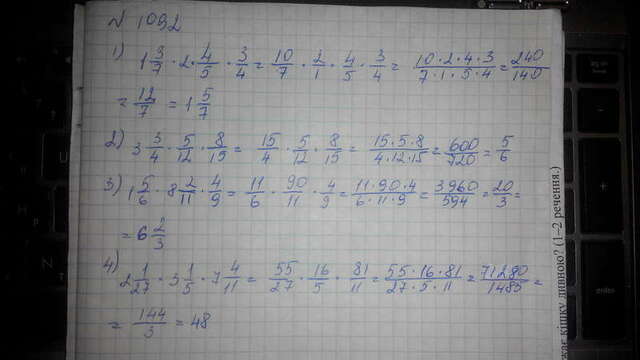 № 1092
1) 1 3/7 · 2 · 4/5 · 3/4 = 10/7 · 2/1 · 4/5 · 3/4 = 10·2·4·3/7·1·5·4 = 240/140
= 12/7 = 1 5/7
2) 3 3/4 · 5/12 · 8/15 = 15/4 · 5/12 · 8/15 = 15·5·8/4·12·15 = 600/720 = 5/6
3) 1 5/6 · 8 2/11 · 4/9 = 11/6 · 90/11 · 4/9 = 11·90·4/6·11·9 = 3960/594 = 20/3 =
= 6 2/3
4) 2 1/27 · 3 1/5 · 7 4/11 = 55/27 · 16/5 · 81/11 = 55·16·81/27·5·11 = 71280/1485 =
= 144/3 = 48
кішку дивною? (1–2 речення.)